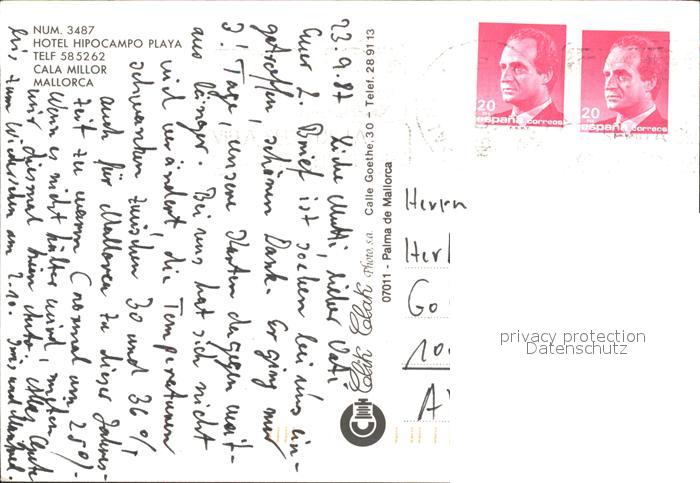 NUM. 3487
HOTEL HIPOCAMPO PLAYA
TELF 585262
CALA MILLOR
MALLORCA
23.9.87 Liebe Mutti, lieber Vati
Euer l. Brief ist soeben bei uns ein-
getroffen, schönen Dank. Er ging nur
3 Tage, unsere Karten dagegen weit-
aus länger. Bei uns hat sich nicht
viel verändert, die Temperaturen
schwanken zwischen 30 und 36°,
auch für Mallorca zu dieser Jahres-
zeit zu warm (normal um 25°).
Wenn es nicht kälter wird, mieten
wir diesmal kein Auto. Alles Gute
bis zum Wiedersehen am 2.10. und
Click Clak Photo, s.a. Calle Goethe, 30 - Telef. 28 91 13
07011 - Palma de Mallorca
20
españa correos
20
españa correos
Herrn
Her
Go
10
privacy protection
Datenschutz